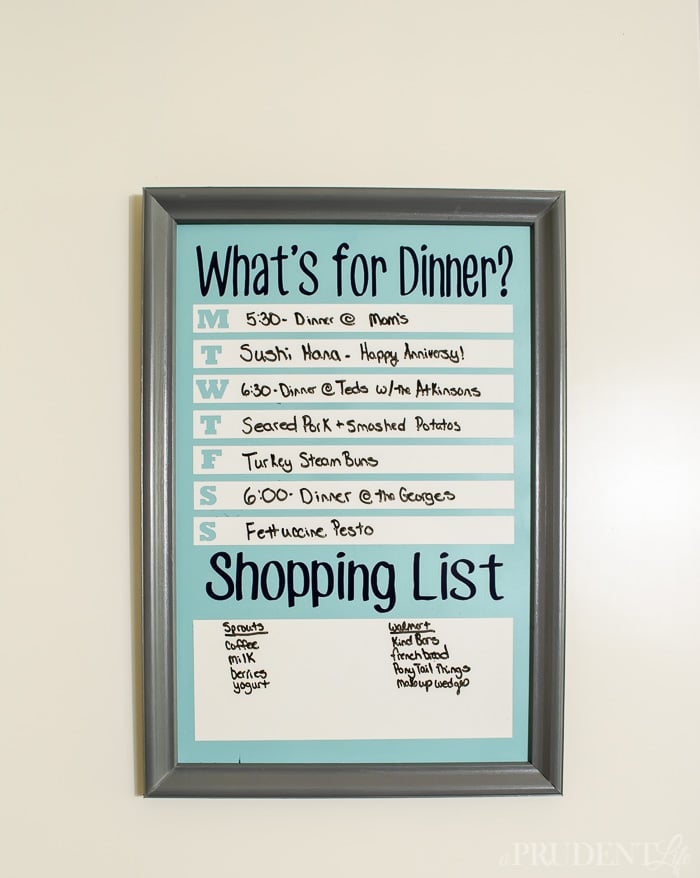 What's for Dinner?
M 5:30- Dinner @ Mom's
T Sushi Hana - Happy Anniversy!
W 6:30-Dinner @ Teds w/the Atkinsons
T Seared Pork + Smashed Potatos
F Turkey Steam Buns
S 6:00- Dinner @ the Georges
S Fettuccine Pesto
Shopping List
Sprouts
coffee
milk
berries
yogurt
Walmart
Kind Bars
french bread
Pony Tail Things
makeup wedges
a PRUDENT Life